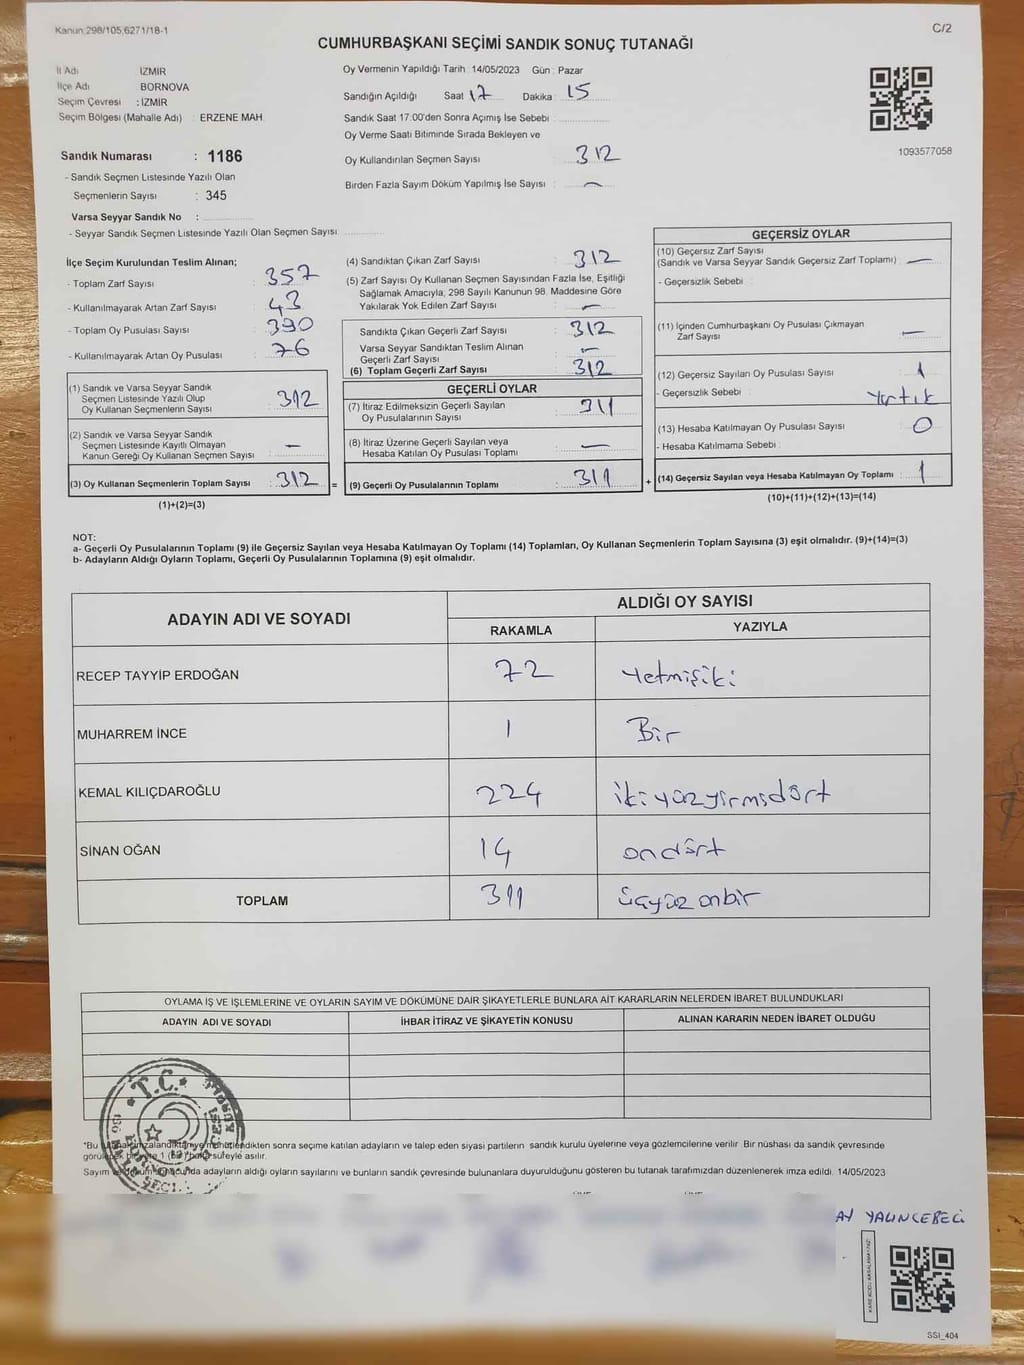 Kanun:298/105,6271/18-1
C/2
CUMHURBAŞKANI SEÇİMİ SANDIK SONUÇ TUTANAĞI
İl Adı İZMİR
İlçe Adı BORNOVA
Seçim Çevresi : İZMİR
Seçim Bölgesi (Mahalle Adı) : ERZENE MAH.
Oy Vermenin Yapıldığı Tarih : 14/05/2023 Gün : Pazar
Sandığın Açıldığı Saat 17 Dakika : 15
Sandık Saat 17.00'den Sonra Açımış İse Sebebi :
Oy Verme Saati Bitiminde Sırada Bekleyen ve
Oy Kullandırılan Seçmen Sayısı : 312
Birden Fazla Sayım Döküm Yapılmış İse Sayısı : —
1093577058
Sandık Numarası : 1186
- Sandık Seçmen Listesinde Yazılı Olan
Seçmenlerin Sayısı : 345
Varsa Seyyar Sandık No :
- Seyyar Sandık Seçmen Listesinde Yazılı Olan Seçmen Sayısı:
İlçe Seçim Kurulundan Teslim Alınan;
- Toplam Zarf Sayısı : 357
- Kullanılmayarak Artan Zarf Sayısı : 43
- Toplam Oy Pusulası Sayısı : 390
- Kullanılmayarak Artan Oy Pusulası : 76
(1) Sandık ve Varsa Seyyar Sandık
Seçmen Listesinde Yazılı Olup
Oy Kullanan Seçmenlerin Sayısı : 312
(2) Sandık ve Varsa Seyyar Sandık
Seçmen Listesinde Kayıtlı Olmayan
Kanun Gereği Oy Kullanan Seçmen Sayısı : —
(3) Oy Kullanan Seçmenlerin Toplam Sayısı : 312 =
(1)+(2)=(3)
(4) Sandıktan Çıkan Zarf Sayısı : 312
(5) Zarf Sayısı Oy Kullanan Seçmen Sayısından Fazla İse, Eşitliği
Sağlamak Amacıyla; 298 Sayılı Kanunun 98. Maddesine Göre
Yakılarak Yok Edilen Zarf Sayısı : —
Sandıkta Çıkan Geçerli Zarf Sayısı : 312
Varsa Seyyar Sandıktan Teslim Alınan
Geçerli Zarf Sayısı : —
(6) Toplam Geçerli Zarf Sayısı : 312
GEÇERLİ OYLAR
(7) İtiraz Edilmeksizin Geçerli Sayılan
Oy Pusulalarının Sayısı : 311
(8) İtiraz Üzerine Geçerli Sayılan veya
Hesaba Katılan Oy Pusulası Toplamı : —
(9) Geçerli Oy Pusulalarının Toplamı : 311 +
GEÇERSİZ OYLAR
(10) Geçersiz Zarf Sayısı
(Sandık ve Varsa Seyyar Sandık Geçersiz Zarf Toplamı) : —
- Geçersizlik Sebebi :
(11) İçinden Cumhurbaşkanı Oy Pusulası Çıkmayan
Zarf Sayısı : —
(12) Geçersiz Sayılan Oy Pusulası Sayısı : 1
- Geçersizlik Sebebi : Yırtık
(13) Hesaba Katılmayan Oy Pusulası Sayısı : 0
- Hesaba Katılmama Sebebi :
(14) Geçersiz Sayılan veya Hesaba Katılmayan Oy Toplamı : 1
(10)+(11)+(12)+(13)=(14)
NOT:
a- Geçerli Oy Pusulalarının Toplamı (9) ile Geçersiz Sayılan veya Hesaba Katılmayan Oy Toplamı (14) Toplamları, Oy Kullanan Seçmenlerin Toplam Sayısına (3) eşit olmalıdır. (9)+(14)=(3)
b- Adayların Aldığı Oyların Toplamı, Geçerli Oy Pusulalarının Toplamına (9) eşit olmalıdır.
ADAYIN ADI VE SOYADI
ALDIĞI OY SAYISI
RAKAMLA YAZIYLA
RECEP TAYYİP ERDOĞAN 72 Yetmişiki
MUHARREM İNCE 1 Bir
KEMAL KILIÇDAROĞLU 224 ikiyüzyirmidört
SİNAN OĞAN 14 ondört
TOPLAM 311 üçyüzonbir
OYLAMA İŞ VE İŞLEMLERİNE VE OYLARIN SAYIM VE DÖKÜMÜNE DAİR ŞİKAYETLERLE BUNLARA AİT KARARLARIN NELERDEN İBARET BULUNDUKLARI
ADAYIN ADI VE SOYADI İHBAR İTİRAZ VE ŞİKAYETİN KONUSU ALINAN KARARIN NEDEN İBARET OLDUĞU
T.C.
*Bu sonra seçime katılan adayların ve talep eden siyasi partilerin sandık kurulu üyelerine veya gözlemcilerine verilir. Bir nüshası da sandık çevresinde
süreyle asılır.
Sayım adayların aldığı oyların sayılarını ve bunların sandık çevresinde bulunanlara duyurulduğunu gösteren bu tutanak tarafımızdan düzenlenerek imza edildi. 14/05/2023
AY YALINCEBECİ
SSI_404